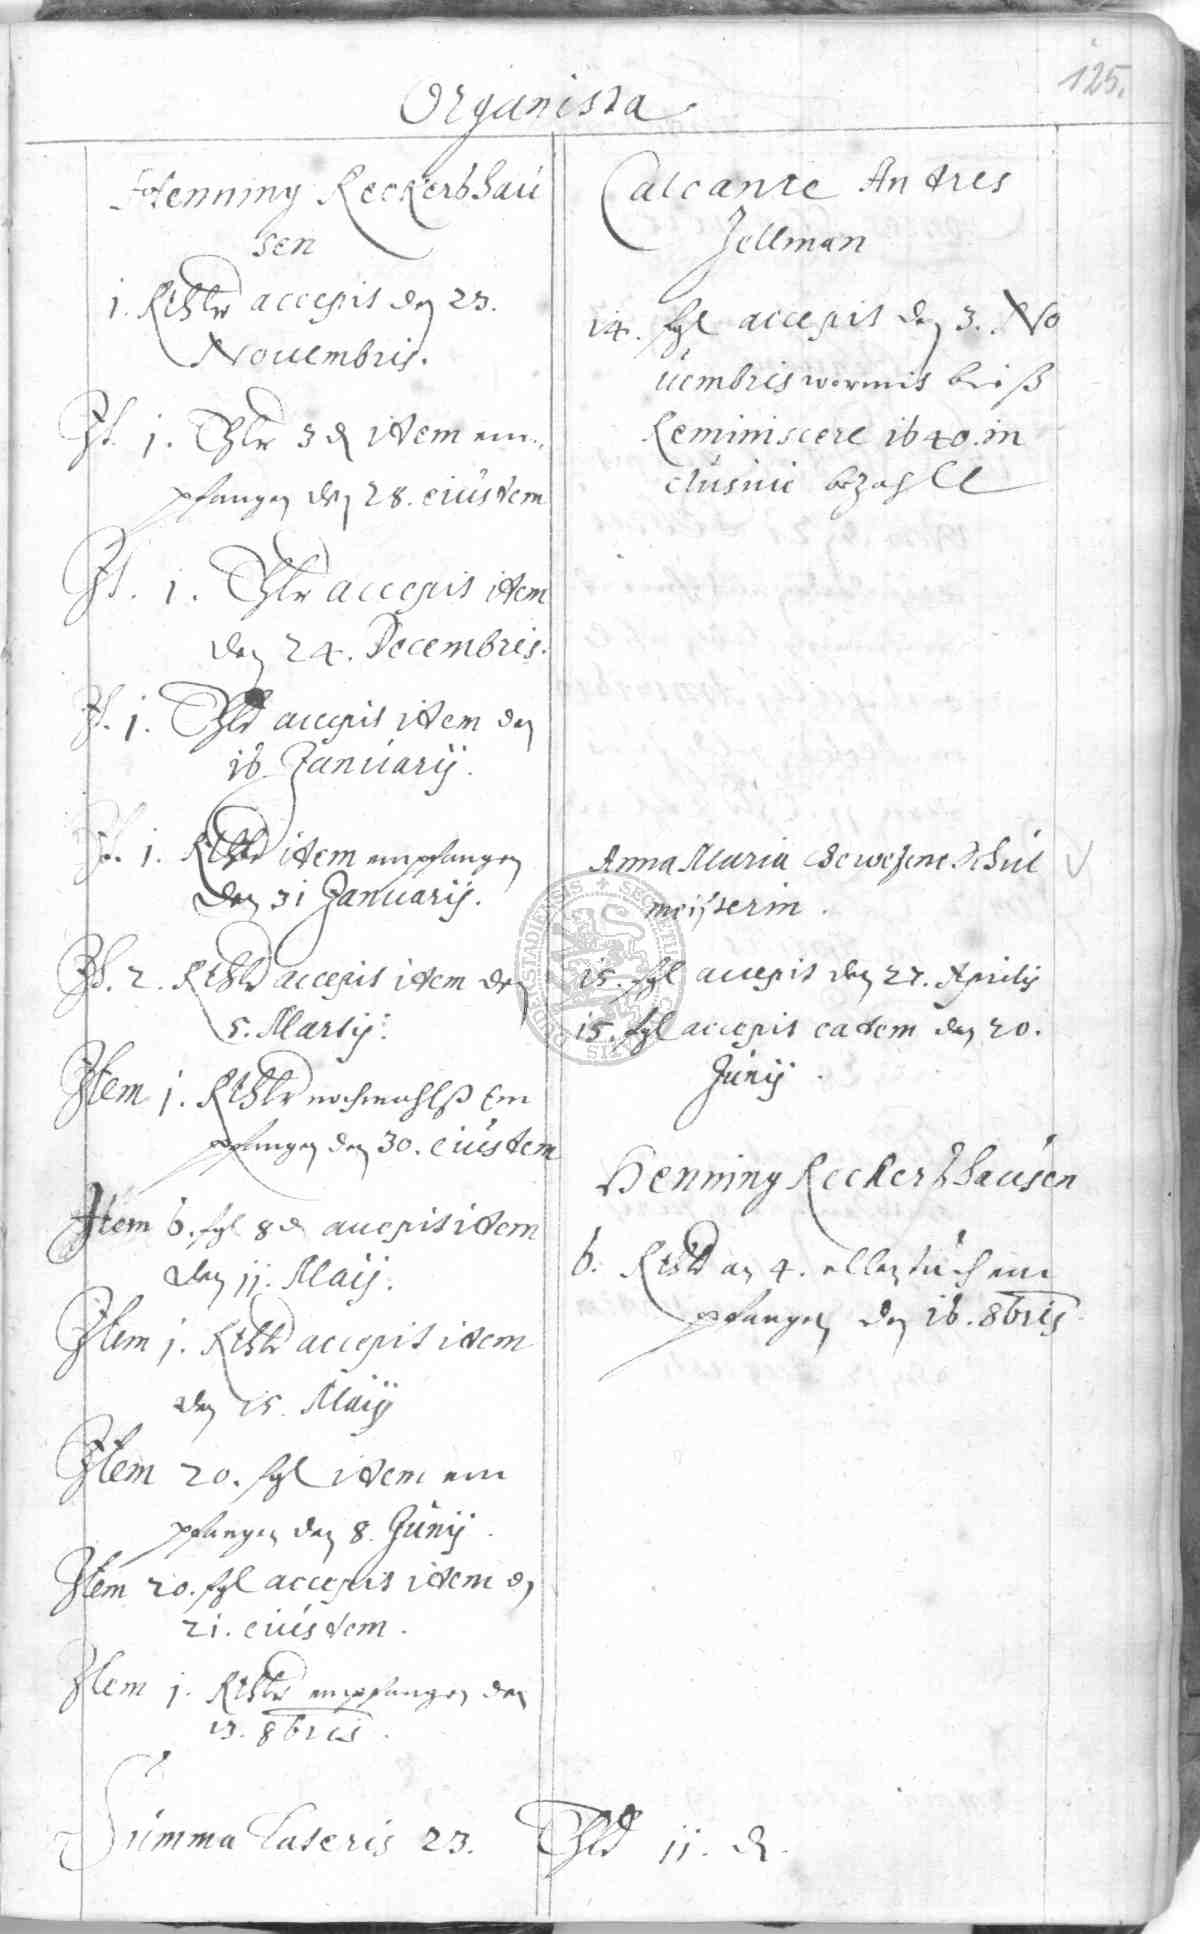 125.
Organista
Henning Reckerßhau
sen
1. Rthlr accepit den 23.
Nouembris.
It. 1. Thlr 3 d item em
pfangen den 28. eiusdem
It. 1. Thlr accepit item
den 24. Decembris.
It. 1. Thlr accepit item den
16 Januarij.
It. 1. Rthlr item empfangen
den 31 Januarij.
It. 2. Rthlr accepit item den
5. Martij.
Item 1. Rthlr nochmahlß Em
pfangen den 30. eiusdem
Item 6. fgl 8 d accepit item
den 11. Maij.
Item 1. Rthlr accepit item
den 15. Maij
Item 20. fgl item em
pfangen den 8. Junij.
Item 20. fgl accepit item d
21. eiusdem.
Item 1. Rthlr empfangen den
13. 8bris.
Calcante Andres
Jellman
14. fgl accepit den 3. No
uembris wormit biß
Reminiscere 1640. in
clusiue bezahlt
Anna Maria Gewesene Schul
meisterin.
15. fgl accepit den 27. Aprilis
15. fgl accepit eadem den 20.
Junij.
Henning Reckerßhausen
6. Rthlr an 4. ellen tuch em
pfangen den 16. 8bris
Summa Lateris 23. Thlr 11. d.